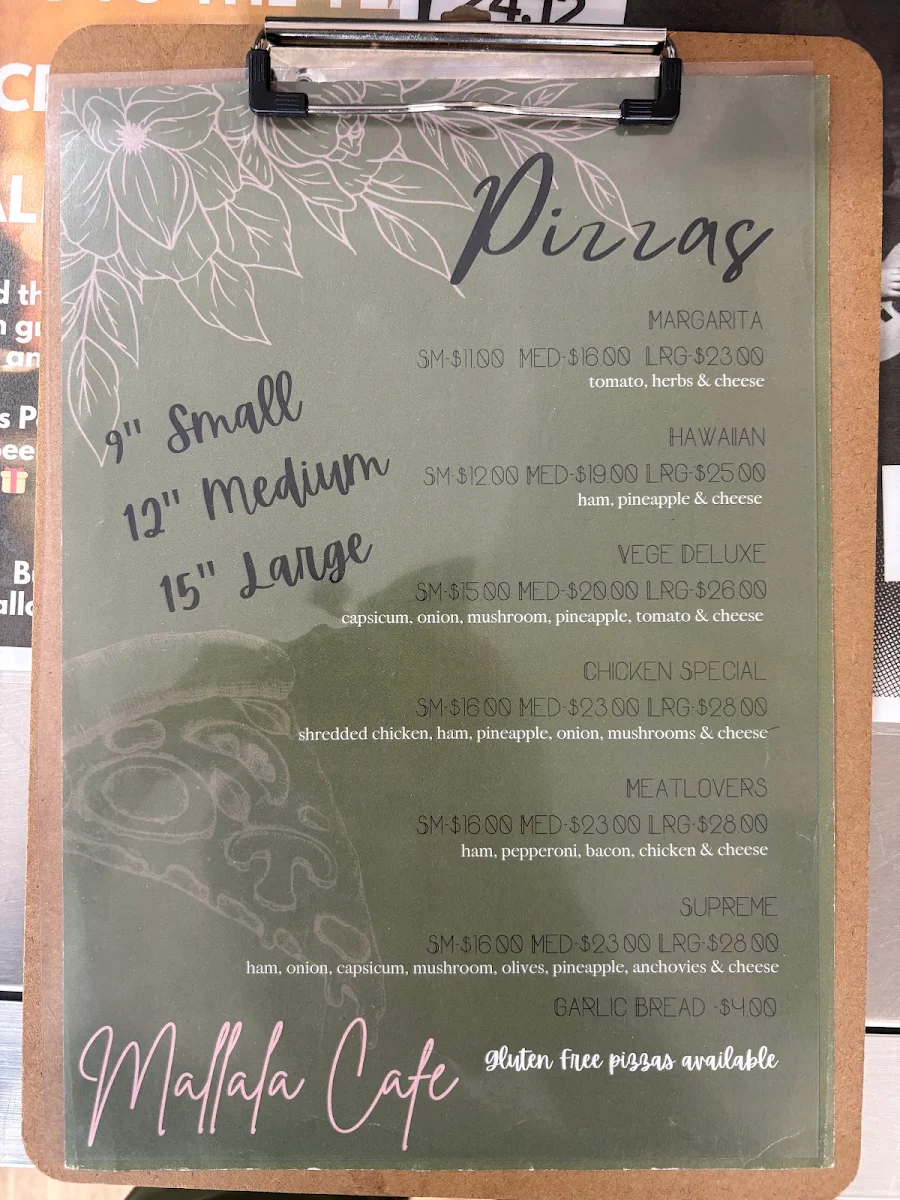 24.12
Pizzas
MARGARITA
SM-$11.00 MED-$16.00 LRG-$23.00
tomato, herbs & cheese
9" Small
12" Medium
15" Large
HAWAIIAN
SM-$12.00 MED-$19.00 LRG-$25.00
ham, pineapple & cheese
VEGE DELUXE
SM-$15.00 MED-$20.00 LRG-$26.00
capsicum, onion, mushroom, pineapple, tomato & cheese
CHICKEN SPECIAL
SM-$16.00 MED-$23.00 LRG-$28.00
shredded chicken, ham, pineapple, onion, mushrooms & cheese
MEATLOVERS
SM-$16.00 MED-$23.00 LRG-$28.00
ham, pepperoni, bacon, chicken & cheese
SUPREME
SM-$16.00 MED-$23.00 LRG-$28.00
ham, onion, capsicum, mushroom, olives, pineapple, anchovies & cheese
GARLIC BREAD -$4.00
Mallala Cafe
gluten free pizzas available